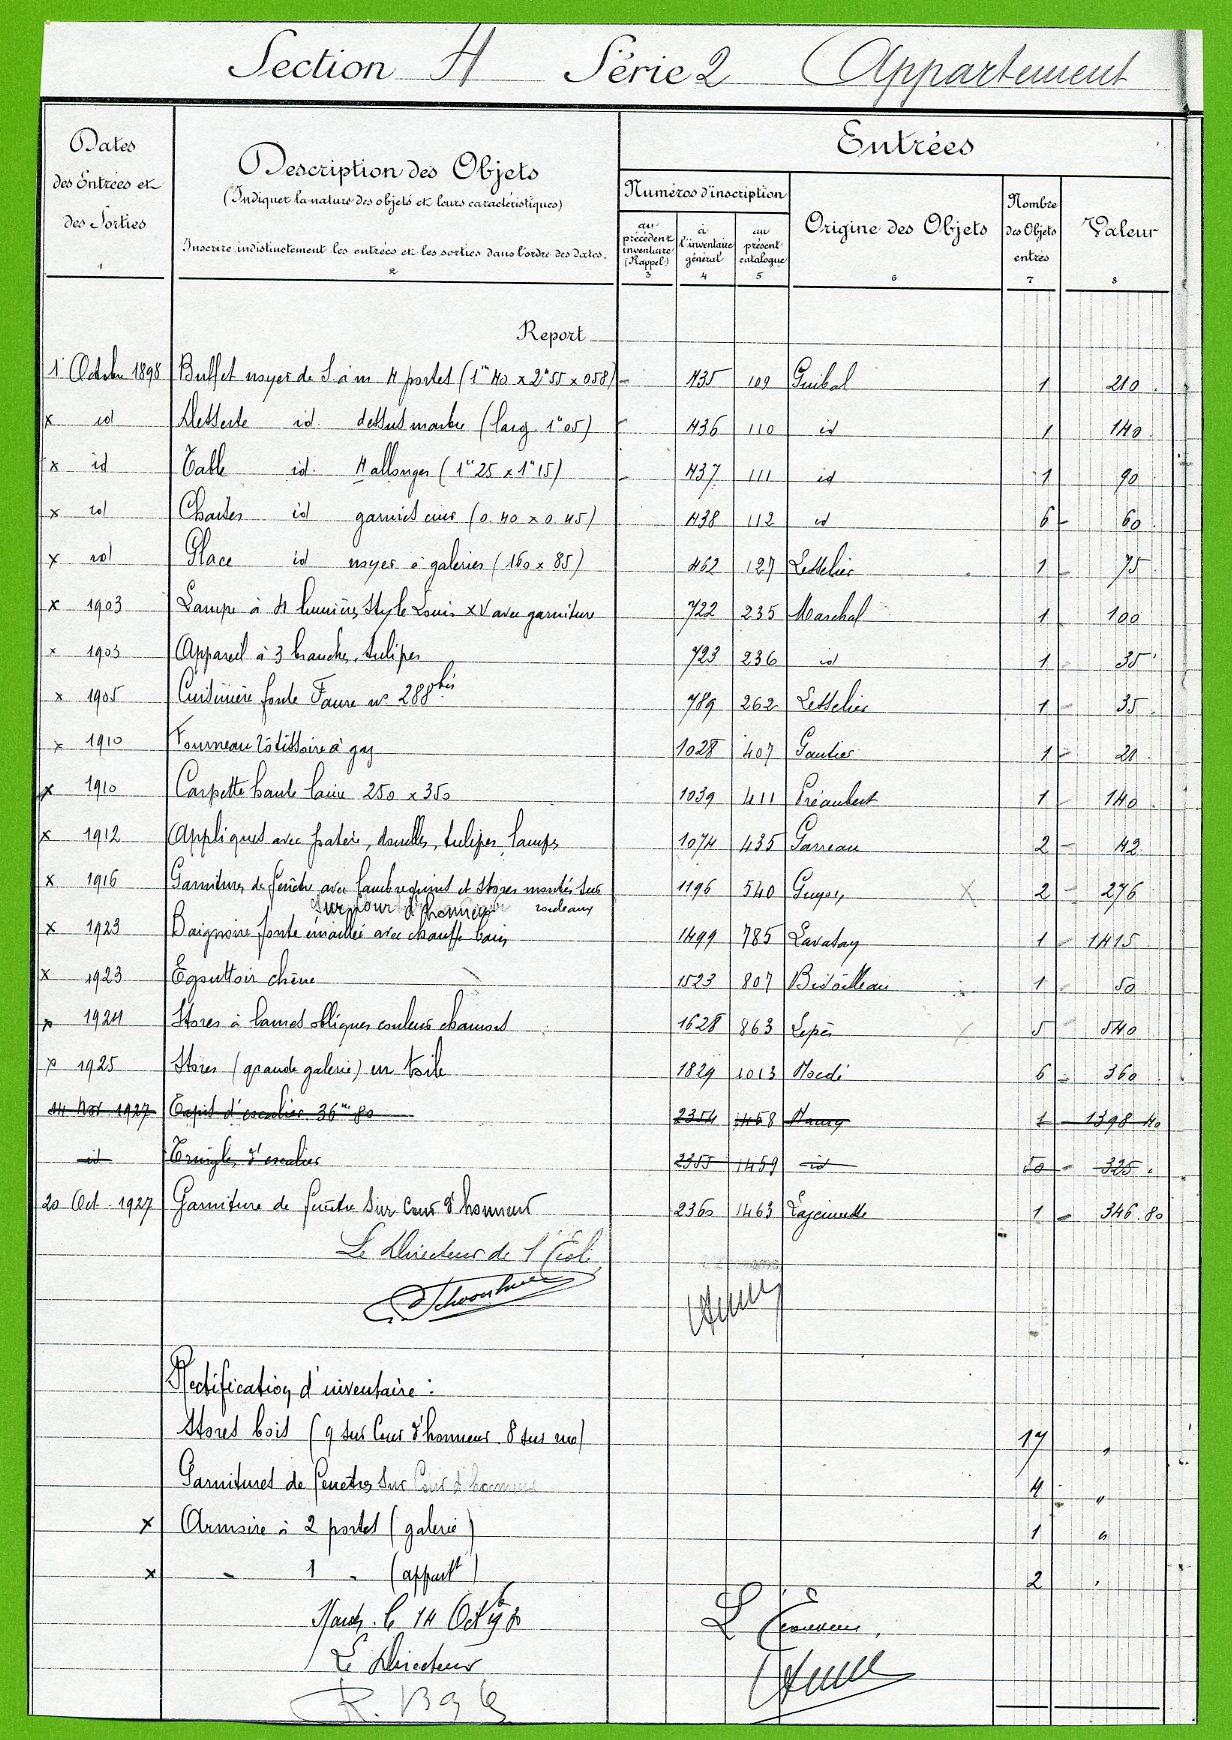 Section H Série 2 Appartement
Dates des Entrées et des Sorties
1
Description des Objets
(Indiquer la nature des objets et leurs caractéristiques)
Inscrire indistinctement les entrées et les sorties dans l'ordre des dates.
2
Entrées
Numéros d'inscription
au précédent inventaire (Rappel)
3
à l'inventaire général
4
au présent catalogue
5
Origine des Objets
6
Nombre des Objets entrés
7
Valeur
8
Report
1 Octobre 1898 Buffet noyer de S à m 4 portes (1m 40 x 2m 55 x 058) 435 109 Guibal 1 210
x id Desserte id dessus marbre (larg 1m 05) 436 110 id 1 140
x id Table id 4 allonges (1m 25 x 1m 15) 437 111 id 1 90
x id Chaises id garnies cuir (0.40 x 0.45) 438 112 id 6 60
x id Glace id noyer à galeries (160 x 85) 462 127 Lesselier 1 75
x 1903 Lampe à 4 lumières, Style Louis XV avec garniture 722 235 Marchal 1 100
x 1903 Appareil à 3 branches, tulipes 723 236 id 1 35
x 1905 Cuisinière fonte Faure no 288 bis 789 262 Lesselier 1 35
x 1910 Fourneau rôtissoire à gaz 1028 407 Gautier 1 21
x 1910 Carpette haute laine 250 x 350 1039 411 Préaubert 1 140
x 1912 Appliques avec patère, douilles, tulipes, lampes 1074 435 Garreau 2 42
x 1916 Garnitures de fenêtre avec lambrequins et stores montés sur 1196 540 X 2 276
sur cour d'honneur
x 1923 Baignoire fonte émaillée avec chauffe bain 1499 785 1 1415
x 1923 Egouttoir chêne 1523 807 1 50
x 1924 Stores à lames obliques couleur chamois 1628 863 5 540
x 1925 Stores (grande galerie) en toile 1829 1013 6 360
14 Nov 1927 Tapis d'escalier 36m 80 2354 1458 1 1398 40
id Tringles d'escalier 2355 1459 id 50 325
20 Oct. 1927 Garniture de fenêtre sur Cour d'honneur 2360 1463 1 346.80
Le Directeur de l'Ecole,
Rectification d'inventaire :
Stores bois (9 sur Cour d'honneur. 8 sur rue) 17 "
Garnitures de fenêtres sur Cour d'honneur 4 "
x Armoire à 2 portes (galerie) 1 "
x - 1 - (appartt) 2 "
le 14 Oct
Le Directeur
L'Econome,